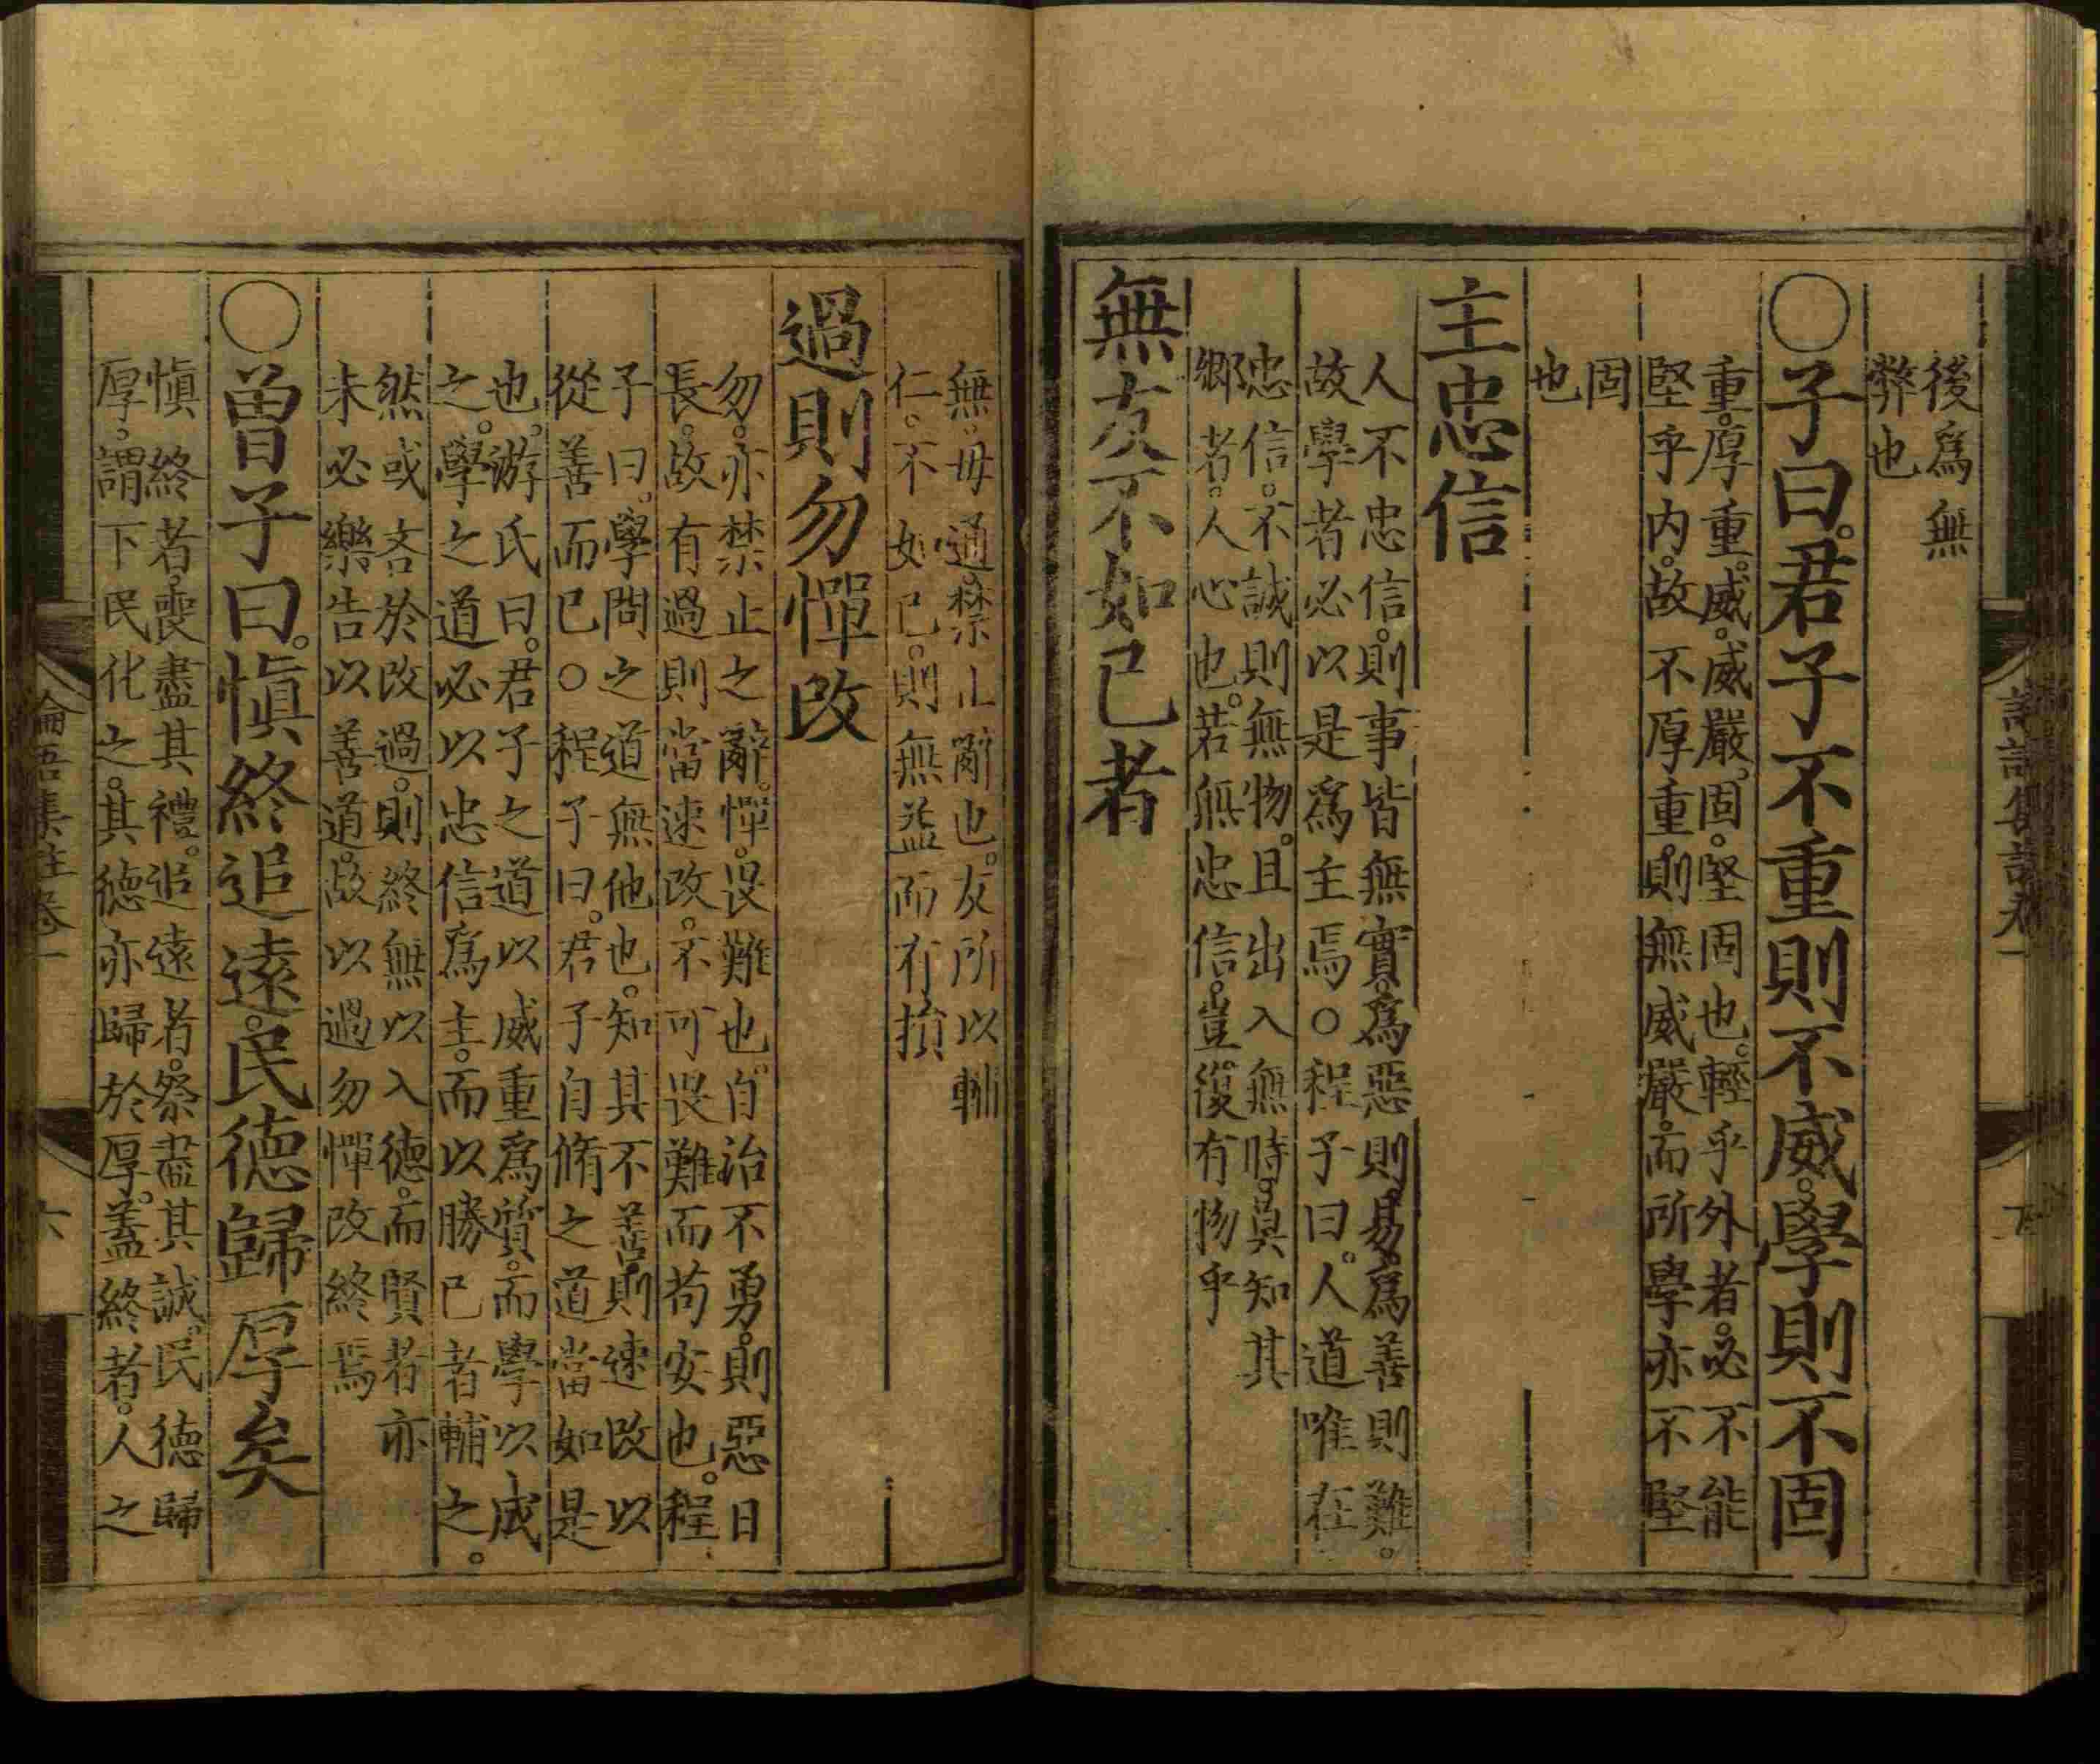 後爲無
弊也
○子曰。君子不重則不威。學則不固
重。厚重。威。威嚴。固。堅固也。輕乎外者。必不能
堅乎内。故不厚重。則無威嚴。而所學亦不堅
固
也
主忠信
人不忠信。則事皆無實。爲惡則易。爲善則難。
故學者必以是爲主焉。○程子曰。人道唯在
忠信。不誠則無物。且出入無時。莫知其
鄉者。人心也。若無忠信。豈復有物乎
無友不如己者
無。毋通。禁止辭也。友所以輔
仁。不如己。則無益而有損
過則勿憚改
勿。亦禁止之辭。憚。畏難也。自治不勇。則惡日
長。故有過則當速改。不可畏難而苟安也。程
子曰。學問之道無他也。知其不善。則速改以
從善而已○程子曰。君子自脩之道當如是
也。游氏曰。君子之道以威重爲質。而學以成
之。學之道必以忠信爲主。而以勝己者輔之。
然或吝於改過。則終無以入德。而賢者亦
未必樂告以善道。故以過勿憚改終焉
○曾子曰。愼終追遠。民德歸厚矣
愼終者。喪盡其禮。追遠者。祭盡其誠。民德歸
厚。謂下民化之。其德亦歸於厚。蓋終者。人之
論語集註卷一
六